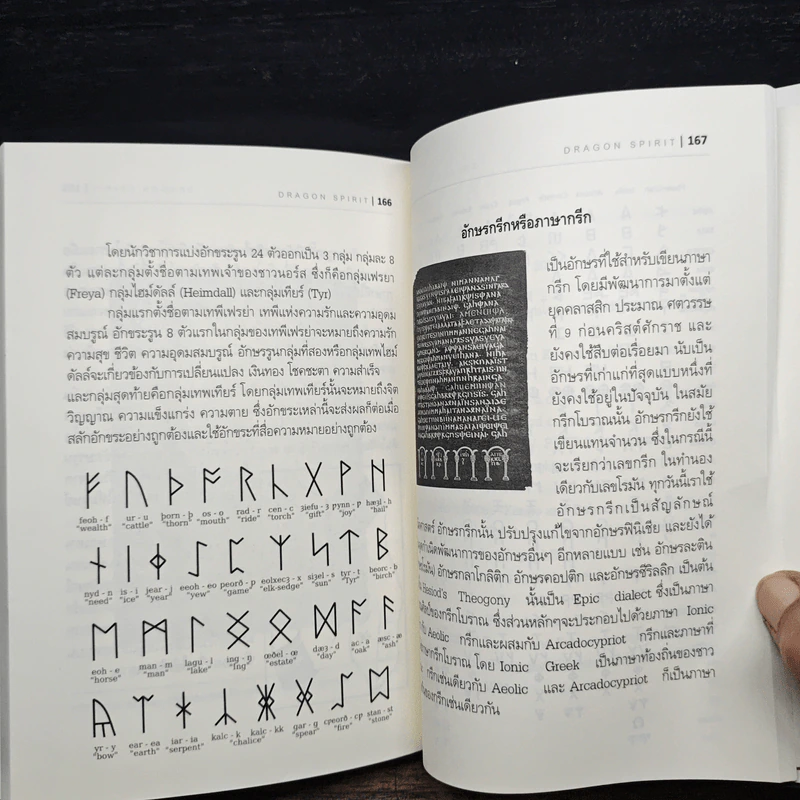 DRAGON SPIRIT | 166
โดยนักวิชาการแบ่งอักขระรูน 24 ตัวออกเป็น 3 กลุ่ม กลุ่มละ 8
ตัว แต่ละกลุ่มตั้งชื่อตามเทพเจ้าของชาวนอร์ส ซึ่งก็คือกลุ่มเฟรยา
(Freya) กลุ่มไฮม์ดัลล์ (Heimdall) และกลุ่มเทียร์ (Tyr)
กลุ่มแรกตั้งชื่อตามเทพีเฟรย่า เทพีแห่งความรักและความอุดม
สมบูรณ์ อักขระรูน 8 ตัวแรกในกลุ่มของเทพีเฟรย่าจะหมายถึงความรัก
ความสุข ชีวิต ความอุดมสมบูรณ์ อักษรรูนกลุ่มที่สองหรือกลุ่มเทพไฮม์
ดัลล์จะเกี่ยวข้องกับการเปลี่ยนแปลง เงินทอง โชคชะตา ความสำเร็จ
และกลุ่มสุดท้ายคือกลุ่มเทพเทียร์ โดยกลุ่มเทพเทียร์นั้นจะหมายถึงจิต
วิญญาณ ความแข็งแกร่ง ความตาย ซึ่งอักขระเหล่านี้จะส่งผลก็ต่อเมื่อ
สลักอักขระอย่างถูกต้องและใช้อักขระที่สื่อความหมายอย่างถูกต้อง
feoh - f ur - u þorn - þ os - o rad - r cen - c ȝiefu - ȝ pynn - p hæȝl - h
"wealth" "cattle" "thorn" "mouth" "ride" "torch" "gift" "joy" "hail"
nyd - n is - i jear - j eeoh - eo peorð - p eolxecȝ - x siȝel - s tyr - t beorc - b
"need" "ice" "year" "yew" "game" "elk-sedge" "sun" "Tyr" "birch"
eoh - e man - m lagu - l ing - ŋ œðel - œ dæȝ - d ac - a æsc - æ
"horse" "man" "lake" "Ing" "estate" "day" "oak" "ash"
yr - y ear - ea iar - ia kalc - k kalc - kk gar - g cpeorð - cp stan - st
"bow" "earth" "serpent" "chalice" "spear" "fire" "stone"
DRAGON SPIRIT | 167
อักษรกรีกหรือภาษากรีก
เป็นอักษรที่ใช้สำหรับเขียนภาษา
กรีก โดยมีพัฒนาการมาตั้งแต่
ยุคคลาสสิก ประมาณ ศตวรรษ
ที่ 9 ก่อนคริสต์ศักราช และ
ยังคงใช้สืบต่อเรื่อยมา นับเป็น
อักษรที่เก่าแก่ที่สุดแบบหนึ่งที่
ยังคงใช้อยู่ในปัจจุบัน ในสมัย
กรีกโบราณนั้น อักษรกรีกยังใช้
เขียนแทนจำนวน ซึ่งในกรณีนี้
จะเรียกว่าเลขกรีก ในทำนอง
เดียวกับเลขโรมัน ทุกวันนี้เราใช้
อักษรกรีกเป็นสัญลักษณ์
อักษรกรีกนั้น ปรับปรุงแก้ไขจากอักษรฟินิเชีย และยังได้
กำเนิดพัฒนาการของอักษรอื่นๆ อีกหลายแบบ เช่น อักษรละติน
อักษรกลาโกลิติก อักษรคอปติก และอักษรซีริลลิก เป็นต้น
Hesiod's Theogony นั้นเป็น Epic dialect ซึ่งเป็นภาษา
ของกรีกโบราณ ซึ่งส่วนหลักๆจะประกอบไปด้วยภาษา Ionic
Aeolic กรีกและผสมกับ Arcadocypriot กรีกและภาษาที่
กรีกโบราณ โดย Ionic Greek เป็นภาษาท้องถิ่นของชาว
กรีกเช่นเดียวกับ Aeolic และ Arcadocypriot ก็เป็นภาษา
ของกรีกเช่นเดียวกัน